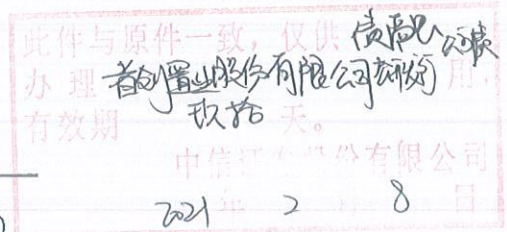 此件与原件一致，仅供 债需呈 公司债
办理 首创置业股份有限公司 获取 用，
有效期 玖拾 天。
中信证券股份有限公司
2021 年 2 月 8 日